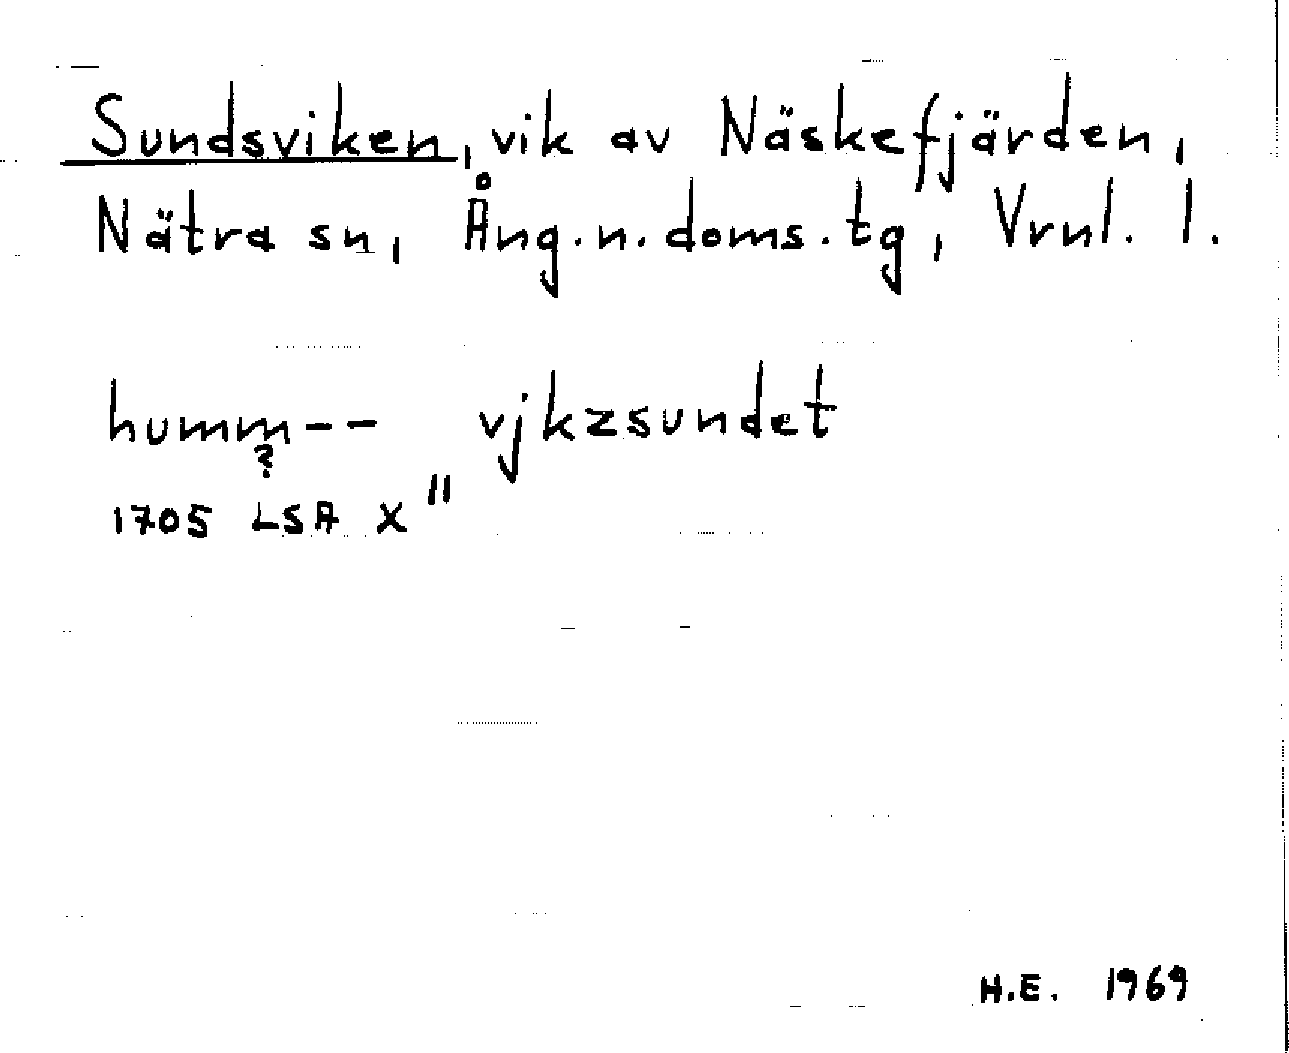 Sundsviken, vik av Näskefjärden,
Nätra sn, Ång.n.doms.tg, Vrnl. l.
humm-- vjkzsundet
?
1705 LSA X"
H.E. 1969